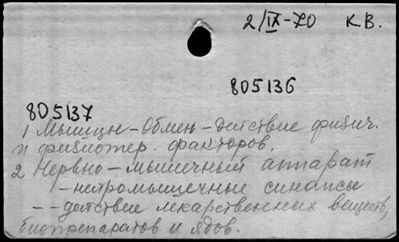 2/IX-70 К.В.
805136
805137
1 Мышцы – Обмен – действие физич.
и физиотер. факторов.
2 Нервно – мышечный аппарат
– нейромышечные синапсы
– – действие лекарственных веществ,
биопрепаратов и ядов.